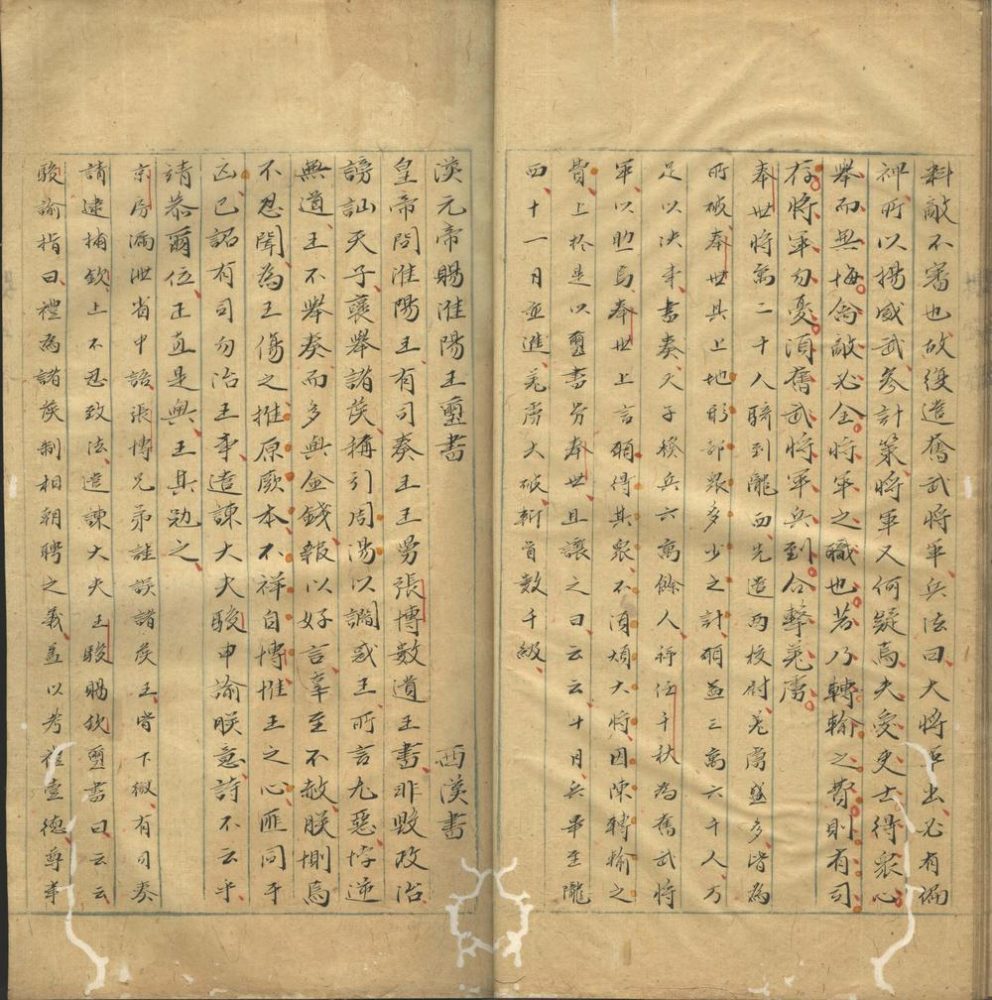 料敵不審也故復遣奮武將軍兵法曰大將軍出必有偏
裨所以揚威武參計策將軍又何疑焉夫愛吏士得衆心
舉而無悔禽敵必全將軍之職也若乃轉輸之費則有司
存將軍勿憂須奮武將軍兵到合擊羌虜
奉世將萬二千人騎到隴西先遣兩校尉羌虜盛多皆為
所破奉世具上地形部眾多少之計願益三萬六千人乃
足以決事書奏天子發兵六萬餘人拜任千秋為奮武將
軍以助焉奉世上言願得其衆不須煩大將因陳轉輸之
費上於是以璽書勞奉世且讓之曰云云十月兵畢至隴
西十一月並進羌虜大破斬首數千級
漢元帝賜淮陽王璽書 西漢書
皇帝問淮陽王有司奏王王舅張博數遺王書非毀政治
謗訕天子襃舉諸侯稱引周湯以讇惑王所言尤惡悖逆
無道王不舉奏而多與金錢報以好言辠至不赦朕惻焉
不忍聞為王傷之推原厥本不祥自博惟王之心匪同于
凶已詔有司勿治王事遣諫大夫駿申諭朕意詩不云乎
靖恭爾位正直是與王其勉之
京房漏泄省中語張博兄弟詿誤諸侯王皆下獄有司奏
請逮捕欽上不忍致法遣諫大夫王駿賜欽璽書曰云云
駿諭指曰禮為諸侯制相朝聘之義蓋以考禮壹德尊事